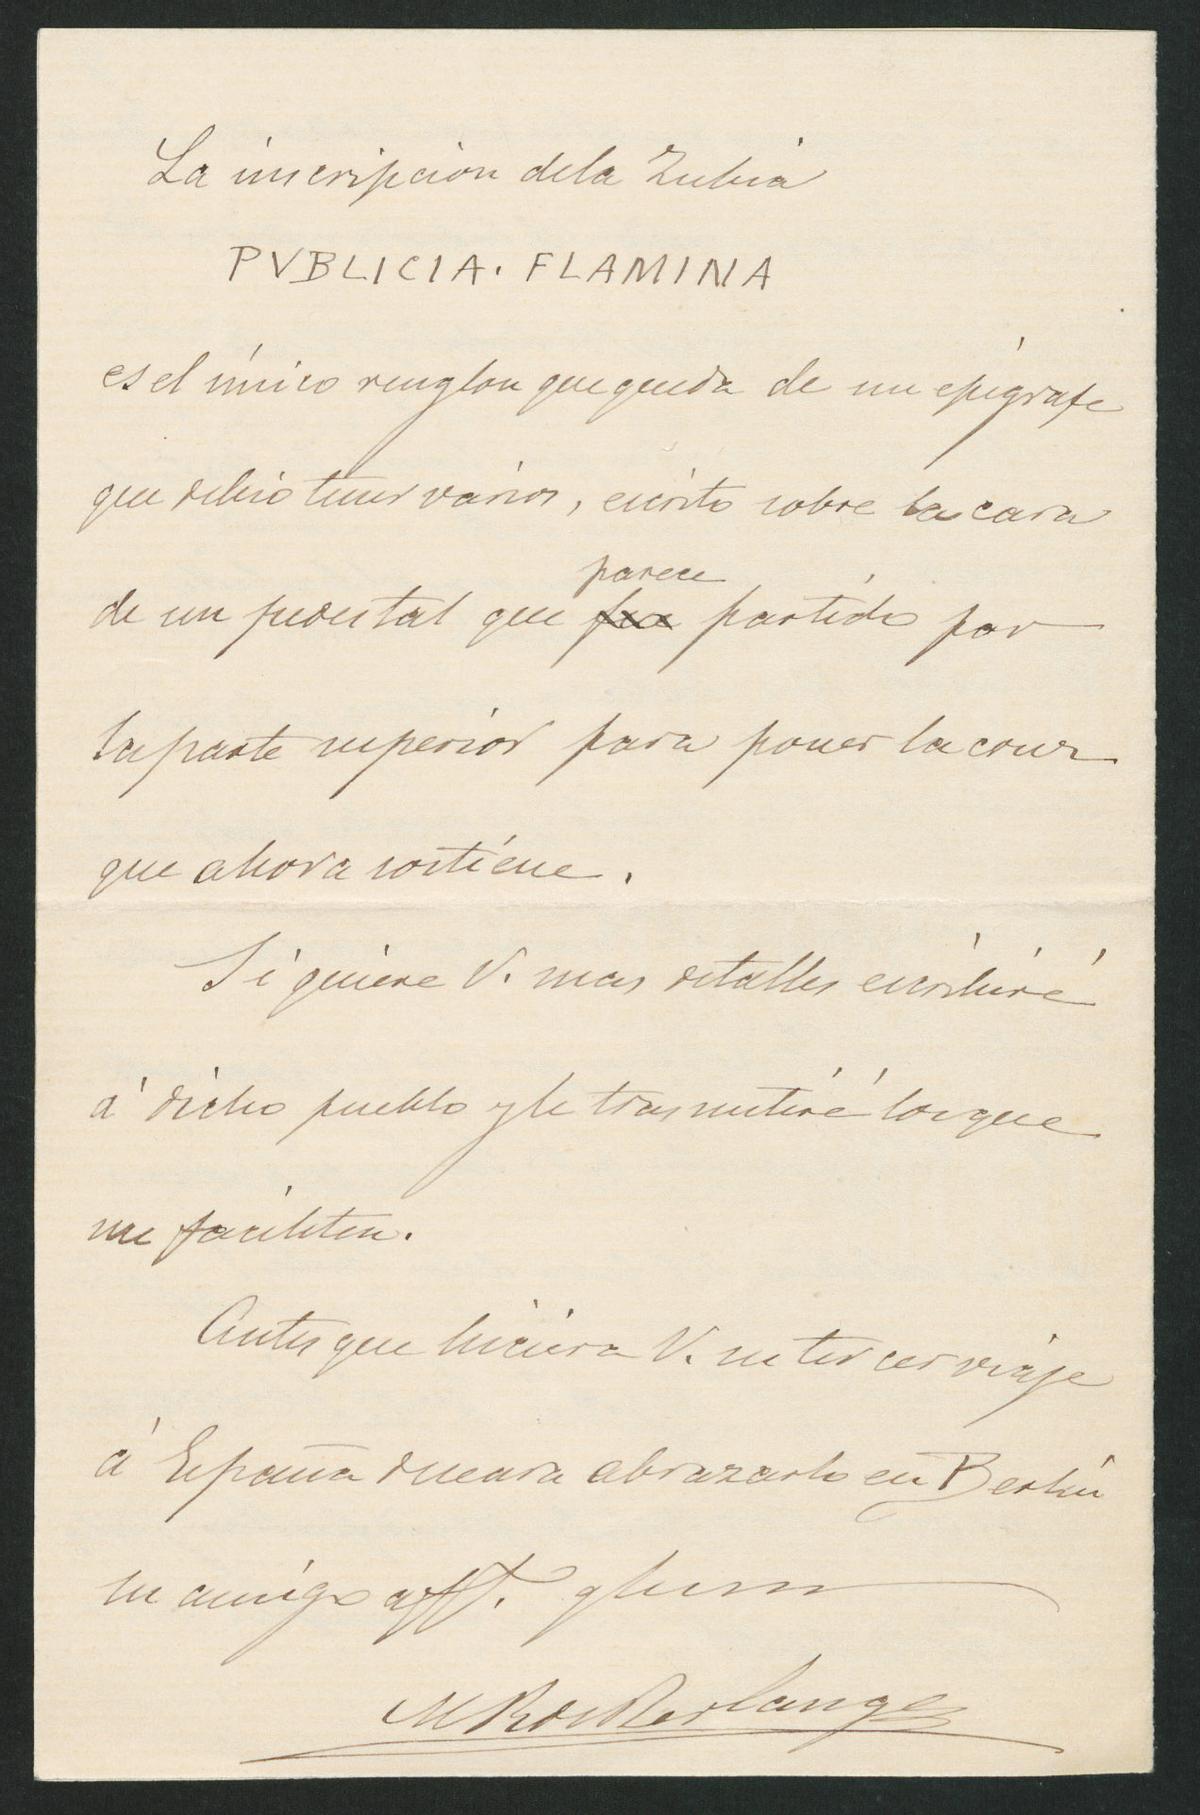 La inscripcion dela Zubia
PVBLICIA. FLAMINA
es el único renglon que queda de un epígrafe
que debio tener varios, escrito sobre la cara
parece
de un pedestal que fue partido por
la parte superior para poner la cruz
que ahora sostiene.
Si quiere V. mas detalles escribiré
á dicho pueblo y le trasmitiré los que
me faciliten.
Antes que hiciera V. su tercer viaje
á España deseara abrazarlo en Berlin
su amigo aff. qbsm
M R de Berlanga